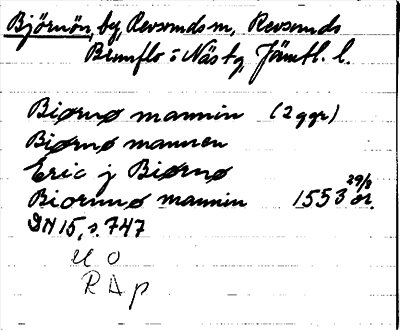 Björnön, by, Revsunds sn, Revsunds
Brunflo o Näs tg Jämtl. l.
Biørnø mannin (2 ggr)
Biørnø mannen
Eric j Biørnø
Biornnø mannin 1553 29/3 or.
DN 15, s. 747
U O
R A p